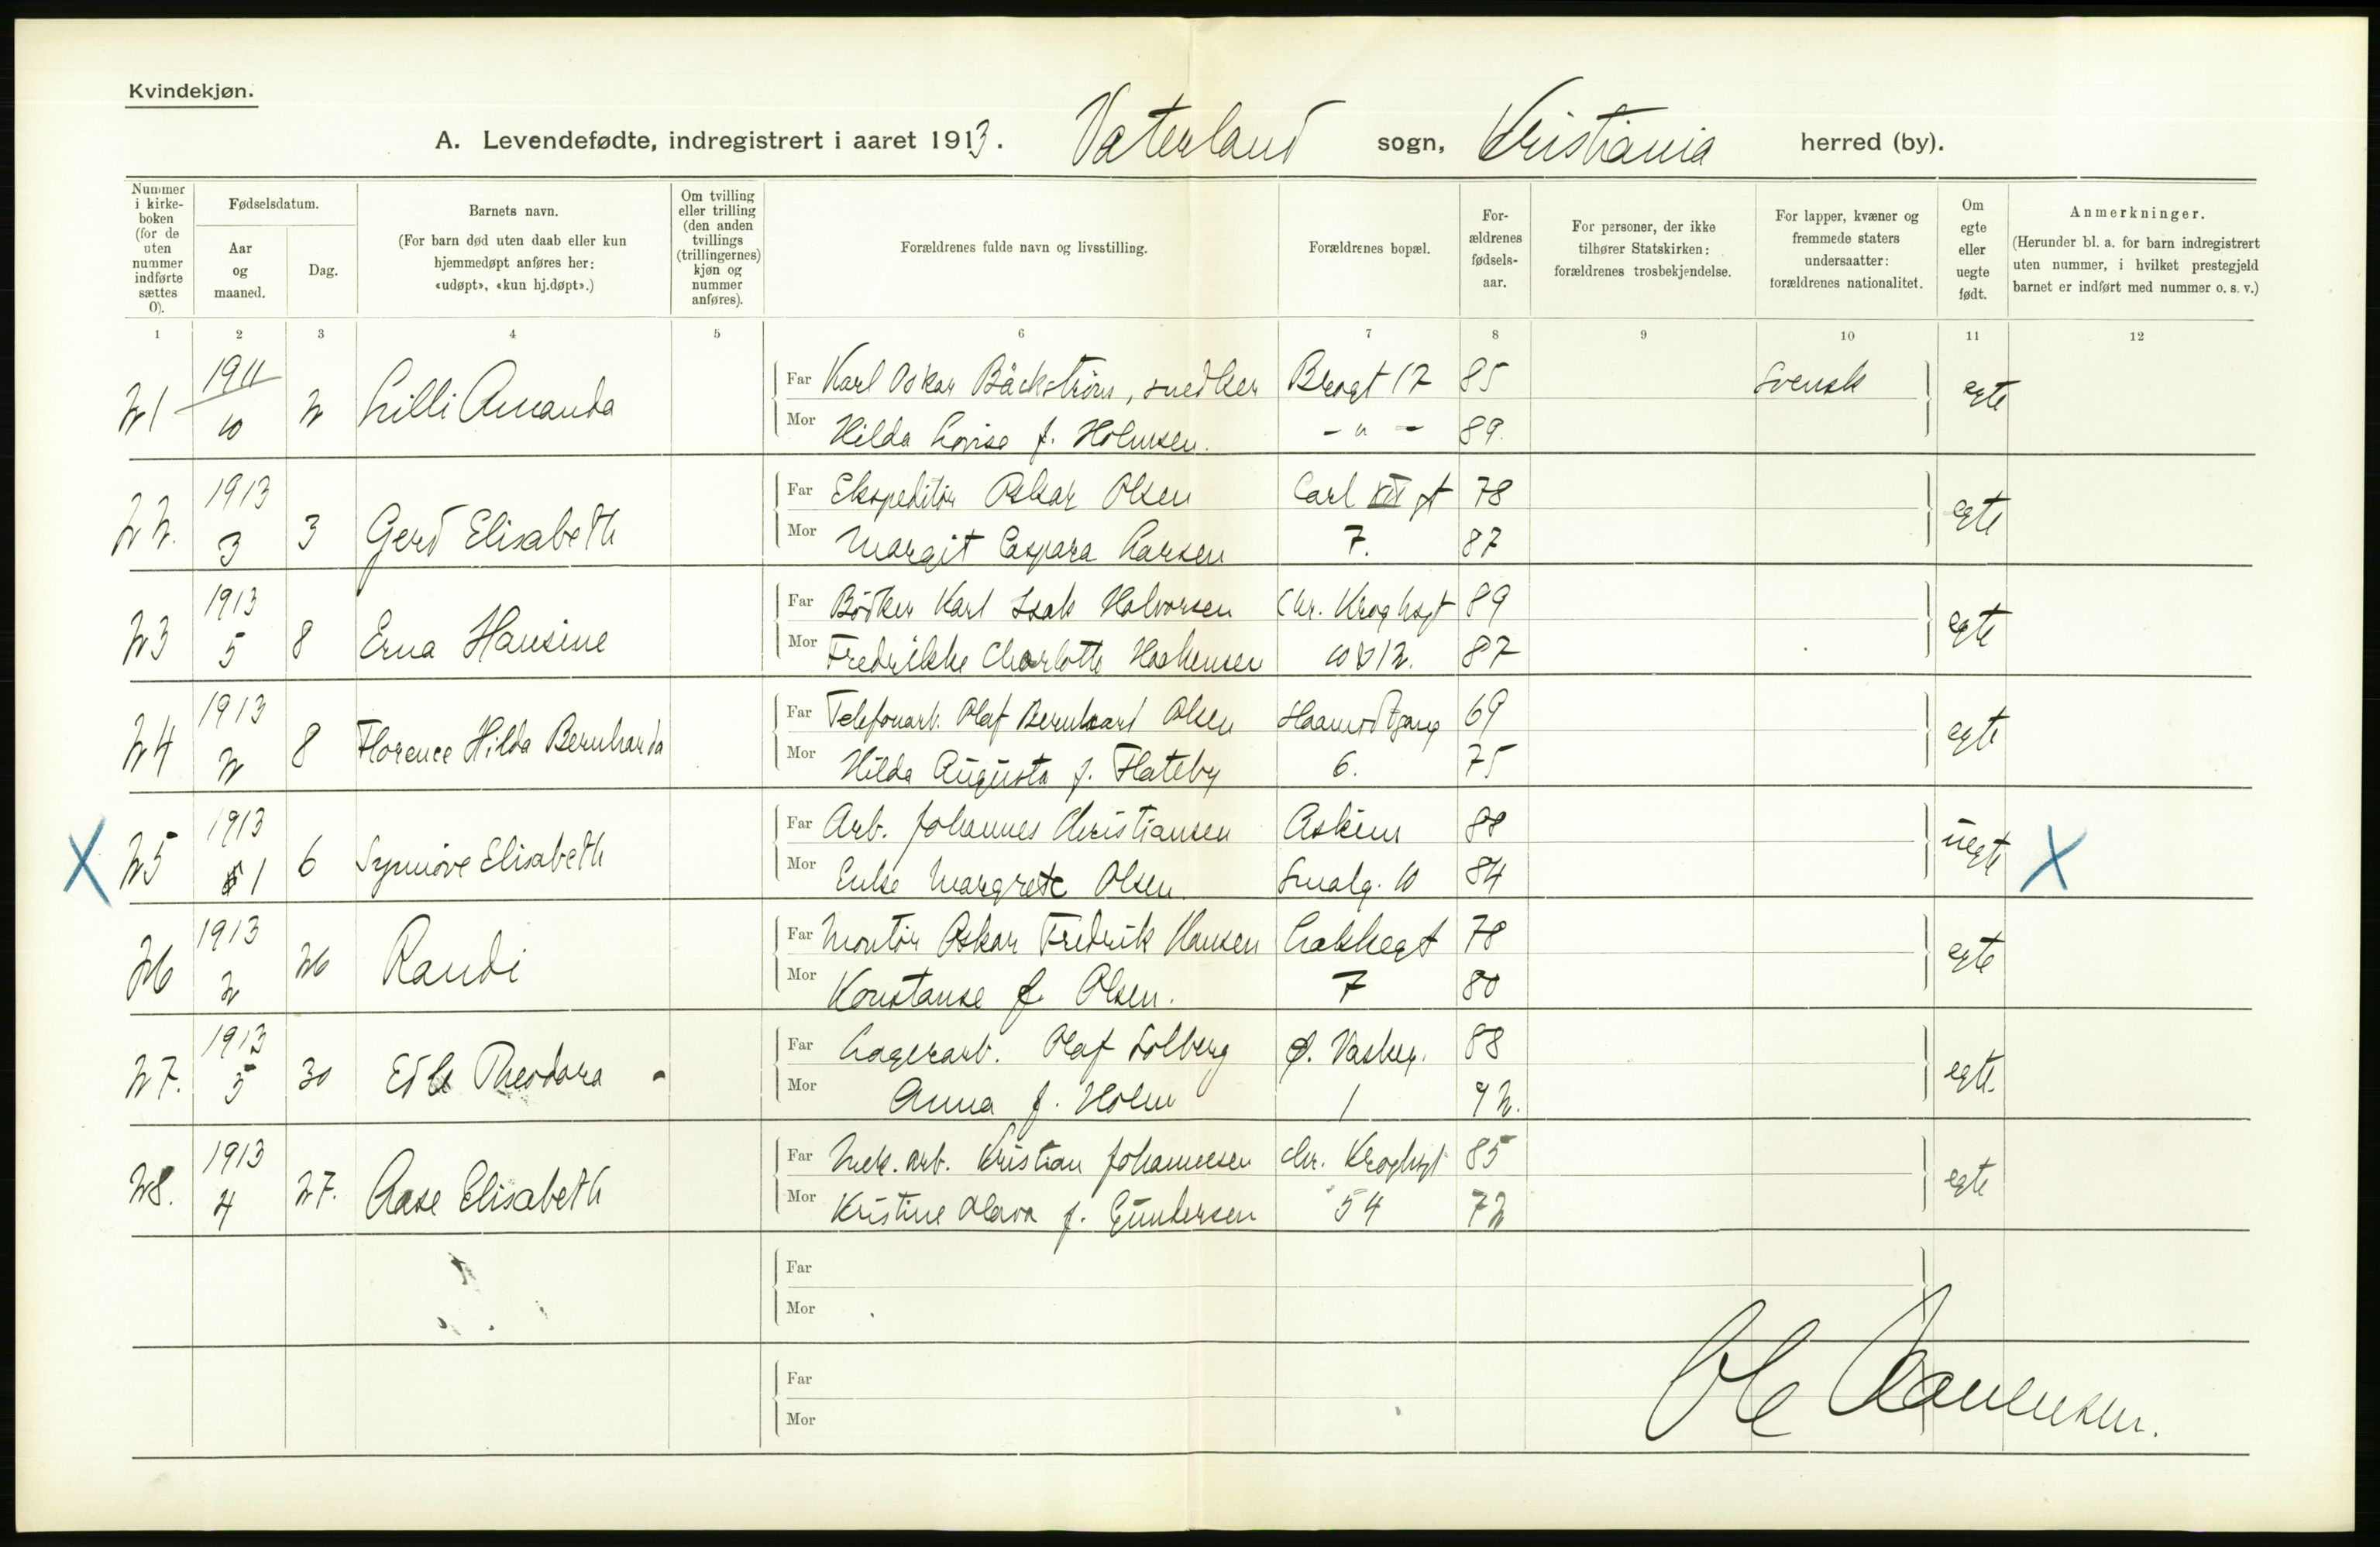 Kvindekjøn.
A. Levendefødte, indregistrert i aaret 1913. Vaterland sogn, Kristiania herred (by).
Nummer i kirke-boken (for de uten nummer indførte sættes 0).
Fødselsdatum.
Aar og maaned.
Dag.
Barnets navn.
(For barn død uten daab eller kun hjemmedøpt anføres her: «udøpt», «kun hj.døpt».)
Om tvilling eller trilling (den anden tvillings (trillingernes) kjøn og nummer anføres).
Forældrenes fulde navn og livsstilling.
Forældrenes bopæl.
For-ældrenes fødsels-aar.
For personer, der ikke tilhører Statskirken: forældrenes trosbekjendelse.
For lapper, kvæner og fremmede staters undersaatter: forældrenes nationalitet.
Om egte eller uegte født.
Anmerkninger.
(Herunder bl. a. for barn indregistrert uten nummer, i hvilket prestegjeld barnet er indført med nummer o. s. v.)
1 2 3 4 5 6 7 8 9 10 11 12
21 1911 10 2 Lilli Amanda
Far Karl Oskar Bäckström, snedker Brogt 17 85 Svensk egte
Mor Hilda Lovise f. Holmsen. - " - 89.
22. 1913 3 3 Gerd Elisabeth
Far Ekspeditör Oskar Olsen Carl XII gt 78 egte
Mor Margit Caspara Larsen 7. 87
23 1913 5 8 Erna Hansine
Far Bödker Karl Isak Halvorsen Chr. Kroghsgt 89 egte
Mor Fredrikke Charlotte 87
24 1913 2 8 Florence Hilda Bernharda
Far Telefonarb. Olaf Bernhard Olsen 69 egte
Mor Hilda Augusta f. Flateby 6. 75
X 25 1913 1 6 Synnöve Elisabeth
Far Arb. Johannes Christiansen Askim 88 uegte X
Mor Enke Margrete Olsen. Smalg. 10 84
26 1913 2 26 Randi
Far Montör Oskar Fredrik Hansen Lakkegt 78 egte
Mor Konstanse f. Olsen. 7 80
27. 1913 5 30 Edle Theodora
Far Lagerarb. Olaf Solberg Ø. Vaskeg. 88 egte
Mor Anna f. Holm 1 92.
28. 1913 4 27. Aase Elisabeth
Far Mek. arb. Kristian Johannesen Chr. Kroghsgt 85 egte
Mor Kristine Olava f. Gundersen 54 72
Far
Mor
Far
Mor
Ole